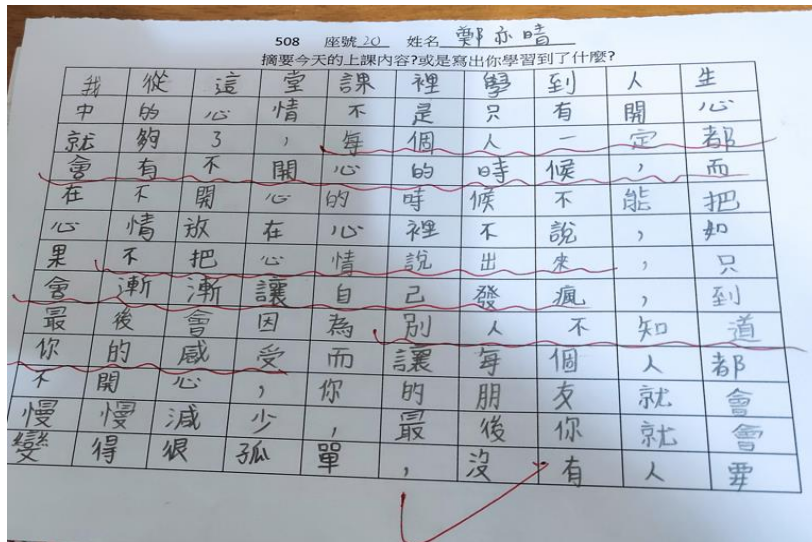 508 座號 20 姓名 鄭亦晴
摘要今天的上課內容?或是寫出你學習到了什麼?
我從這堂課裡學到人生
中的心情不是只有開心
就夠了,每個人一定都
會有不開心的時候,而
在不開心的時候不能把
心情放在心裡不說,如
果不把心情說出來,只
會漸漸讓自己發瘋,到
最後會因為別人不知道
你的感受而讓每個人都
不開心,你的朋友就會
慢慢減少,最後你就會
變得很孤單,沒有人要